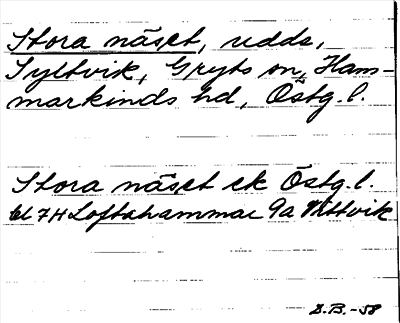 Stora näset, udde,
Syltvik, Gryts sn, Ham-
markinds hd, Östg. l.
Stora näset ek Östg. l.
bl 7H Loftahammar 9a Vittvik
D.B. -58